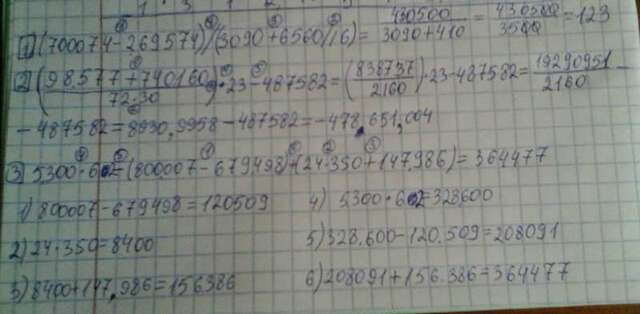 1) (700074-269574)/(3090+6560/16)= 430500/3090+410 = 430500/3500 =123
2) (98577+740160/72·30)·23-487582=(838737/2160)·23-487582= 19290951/2160 -
-487582=8930,9958-487582=-478.651,004
3) 5300·62-(800007-679498)+(24·350+147.986)=364477
1) 800007-679498=120509 4) 5300·62=328600
2) 24·350=8400 5) 328.600-120.509=208091
3) 8400+147.986=156386 6) 208091+156.386=364477